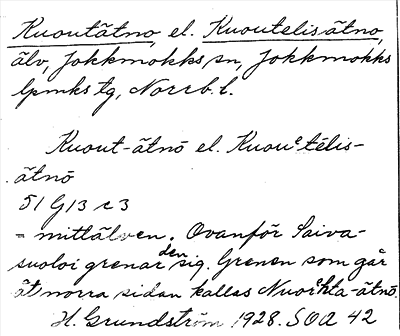 Kuoutätno, el. Kuoutelisätno,
älv, Jokkmokks sn, Jokkmokks
lpmks tg, Norrb. l.
Kuout-ätnō el. Kuouᵉtēlis-
ätnō
51 G13 c 3
= mittälven. Ovanför Saiva-
suoloi grenar den sig. Grenen som går
åt norra sidan kallas Nuorthta-ätnō.
H. Grundström 1928. SOA 42